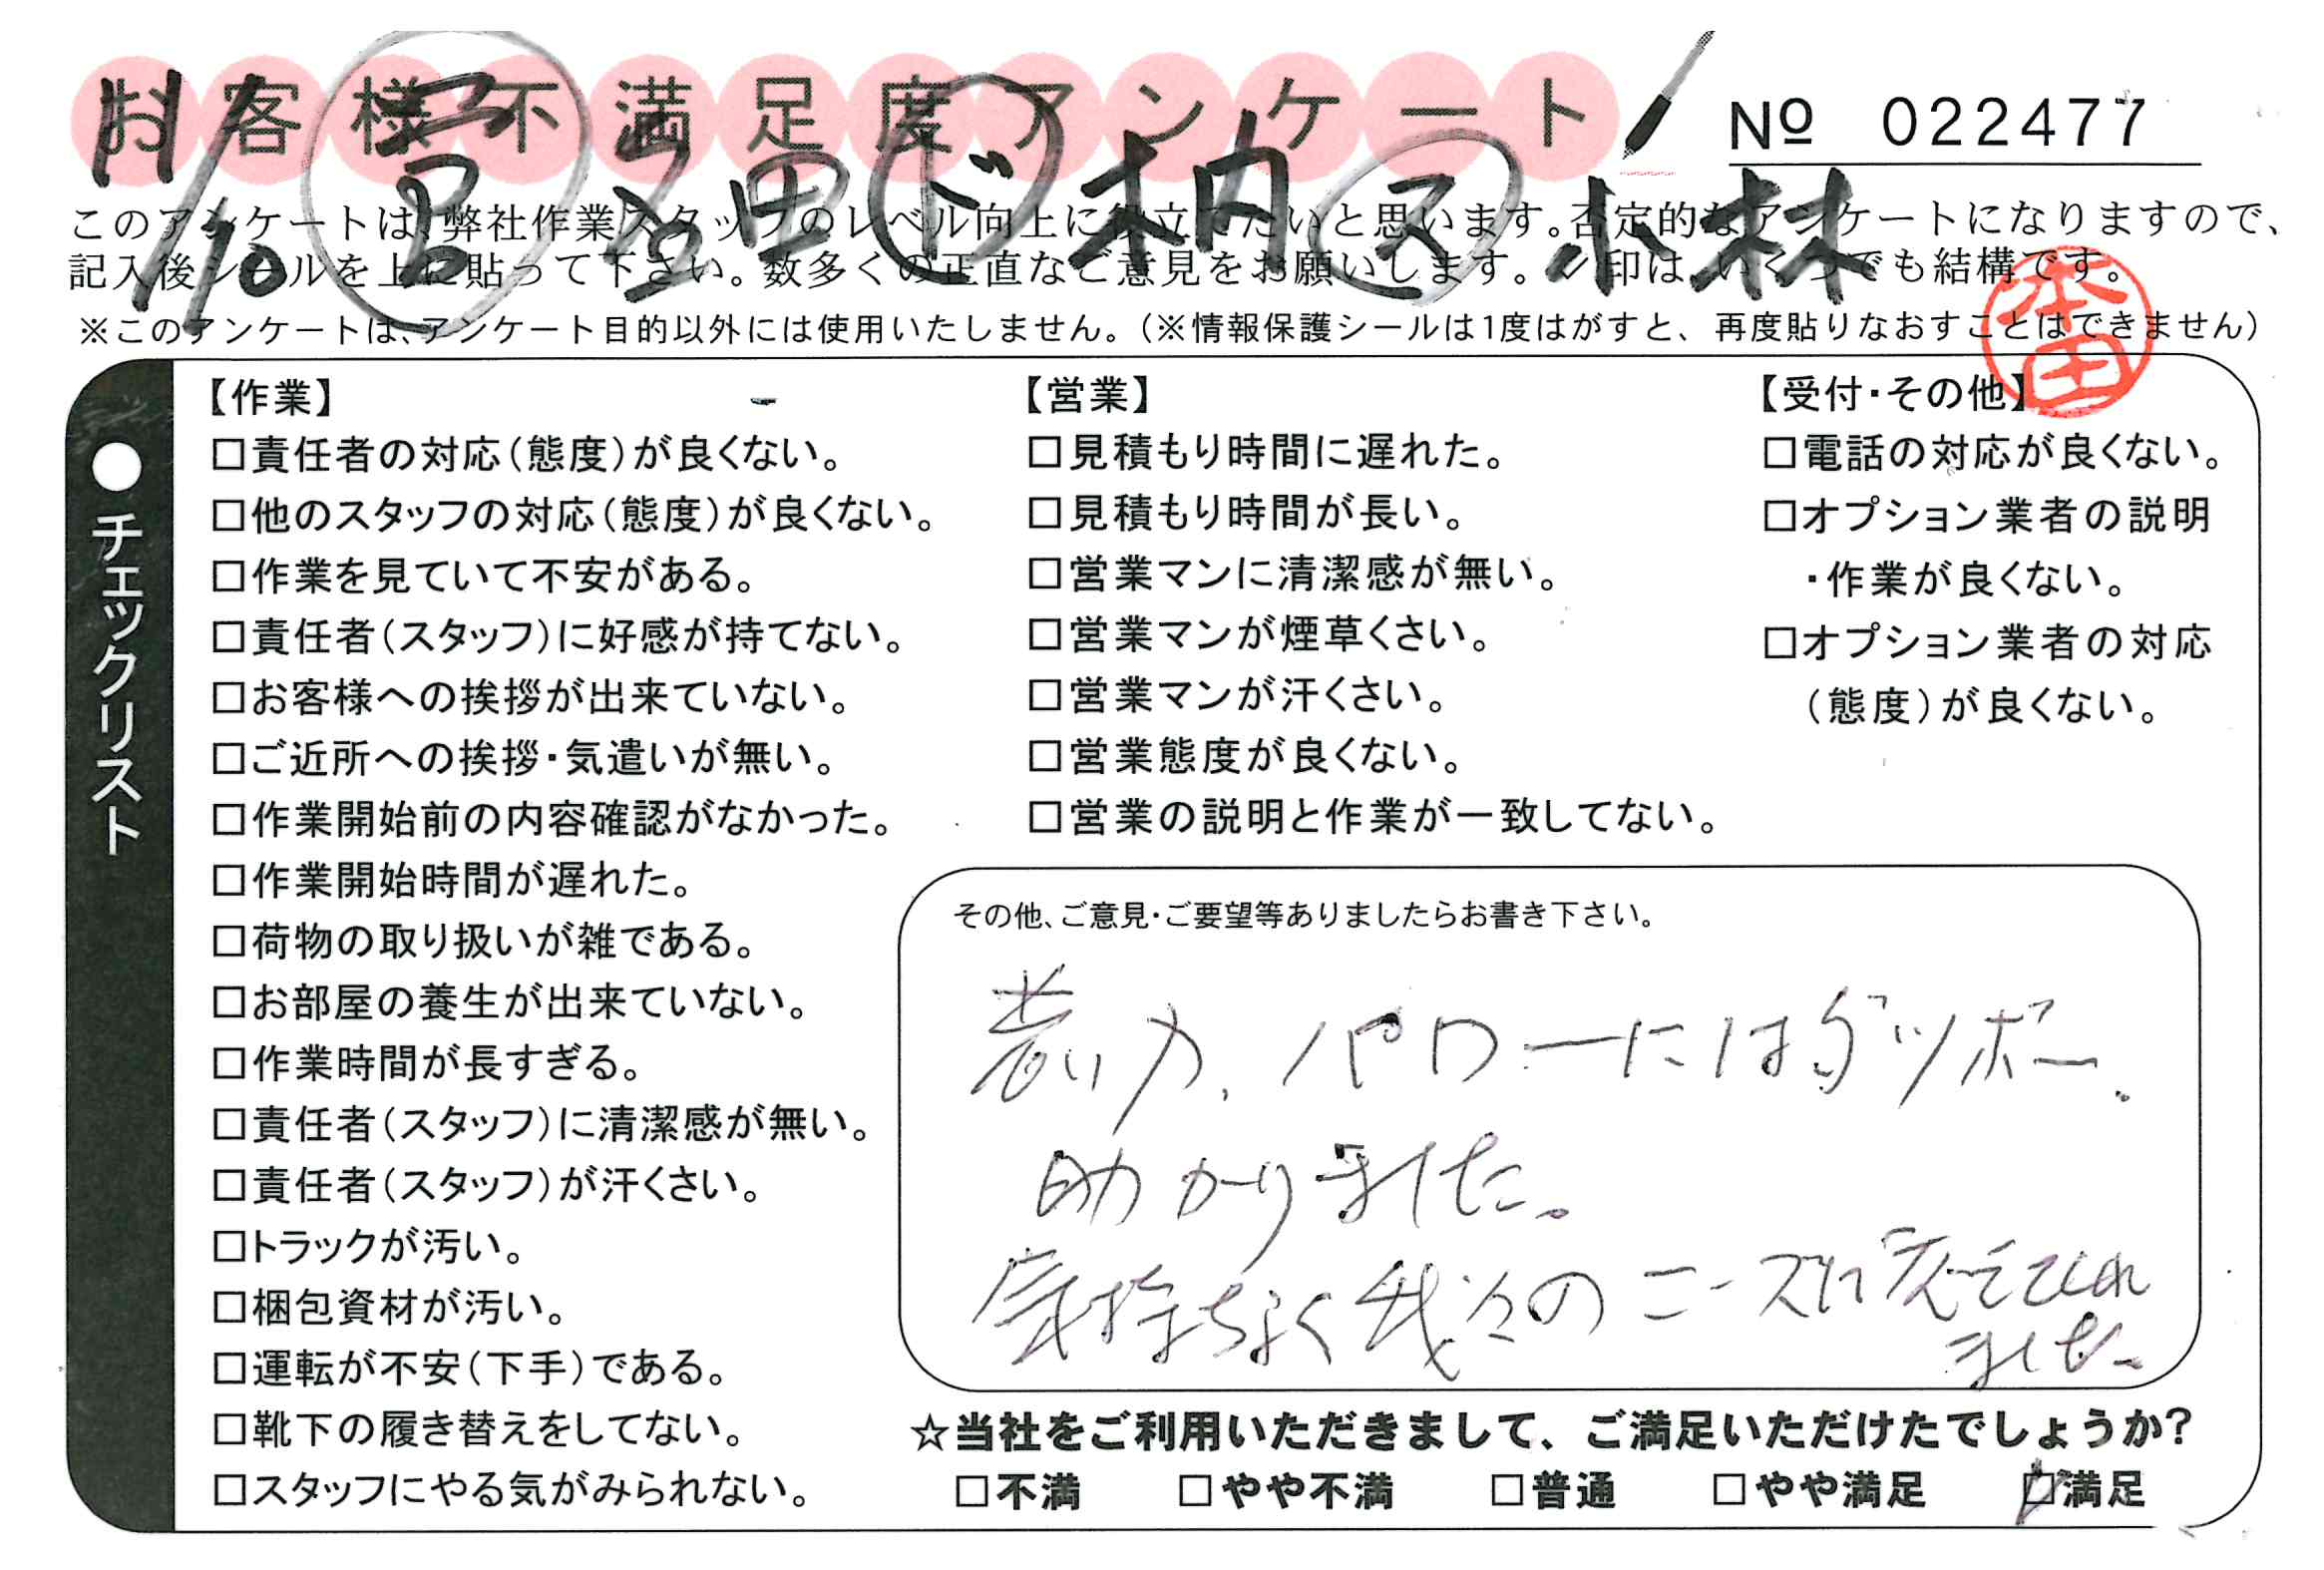 お客様不満足度アンケート
№ 022477
11/10 営 沼田 ド 柄 ス 小林
このアンケートは、弊社作業スタッフのレベル向上に役立てたいと思います。否定的なアンケートになりますので、
記入後シールを上に貼って下さい。数多くの正直なご意見をお願いします。レ印は、いくつでも結構です。
※このアンケートは、アンケート目的以外には使用いたしません。(※情報保護シールは1度はがすと、再度貼りなおすことはできません)
本田
●チェックリスト
【作業】
□責任者の対応(態度)が良くない。
□他のスタッフの対応(態度)が良くない。
□作業を見ていて不安がある。
□責任者(スタッフ)に好感が持てない。
□お客様への挨拶が出来ていない。
□ご近所への挨拶・気遣いが無い。
□作業開始前の内容確認がなかった。
□作業開始時間が遅れた。
□荷物の取り扱いが雑である。
□お部屋の養生が出来ていない。
□作業時間が長すぎる。
□責任者(スタッフ)に清潔感が無い。
□責任者(スタッフ)が汗くさい。
□トラックが汚い。
□梱包資材が汚い。
□運転が不安(下手)である。
□靴下の履き替えをしてない。
□スタッフにやる気がみられない。
【営業】
□見積もり時間に遅れた。
□見積もり時間が長い。
□営業マンに清潔感が無い。
□営業マンが煙草くさい。
□営業マンが汗くさい。
□営業態度が良くない。
□営業の説明と作業が一致してない。
【受付・その他】
□電話の対応が良くない。
□オプション業者の説明
・作業が良くない。
□オプション業者の対応
(態度)が良くない。
その他、ご意見・ご要望等ありましたらお書き下さい。
若い力、パワーにはダツボー。
助かりました。
気持ちよく我々のニーズに応えてくれ
ました
☆当社をご利用いただきまして、ご満足いただけたでしょうか?
□不満 □やや不満 □普通 □やや満足 ☑満足